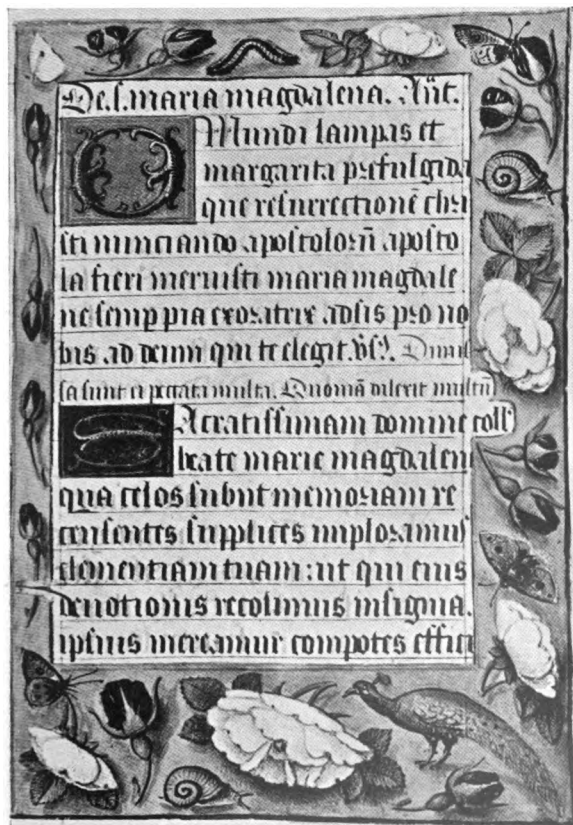 De.s.maria magdalena. Añt.
O Mundi lampas et
margarita prefulgida
que resurrectionē chri
sti nunciando apostolorū aposto
la fieri meruisti maria magdale
ne semp pia exoratrix adsis pro no
bis ad deum qui te elegit. v̄s. Dimis
sa sunt ei peccata multa. Quoniā dilexit multū
Sacratissimam domine coll'
beate marie magdalene
qua celos subiit memoriam re
censentes supplices imploramus
clementiam tuam: ut qui eius
deuotionis recolimus insignia.
ipsius mereamur compotes effici